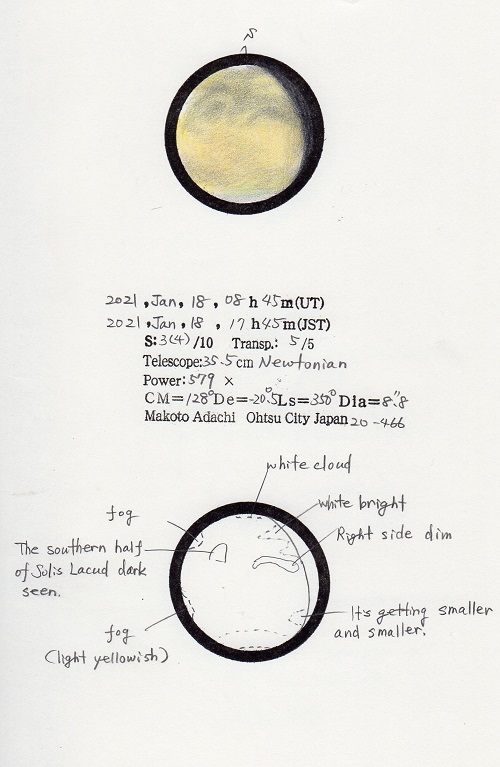 S
2021, Jan, 18, 08 h 45m(UT)
2021, Jan, 18, 17 h 45m(JST)
S: 3(4)/10 Transp.: 5/5
Telescope: 35.5 cm Newtonian
Power: 579 ×
CM=128° De=-20.°5 Ls=350° Dia=8."8
Makoto Adachi Ohtsu City Japan 20-466
white cloud
white bright
fog
Right side dim
The southern half
of Solis Lacud dark
seen.
It's getting smaller
and smaller.
fog
(light yellowish)